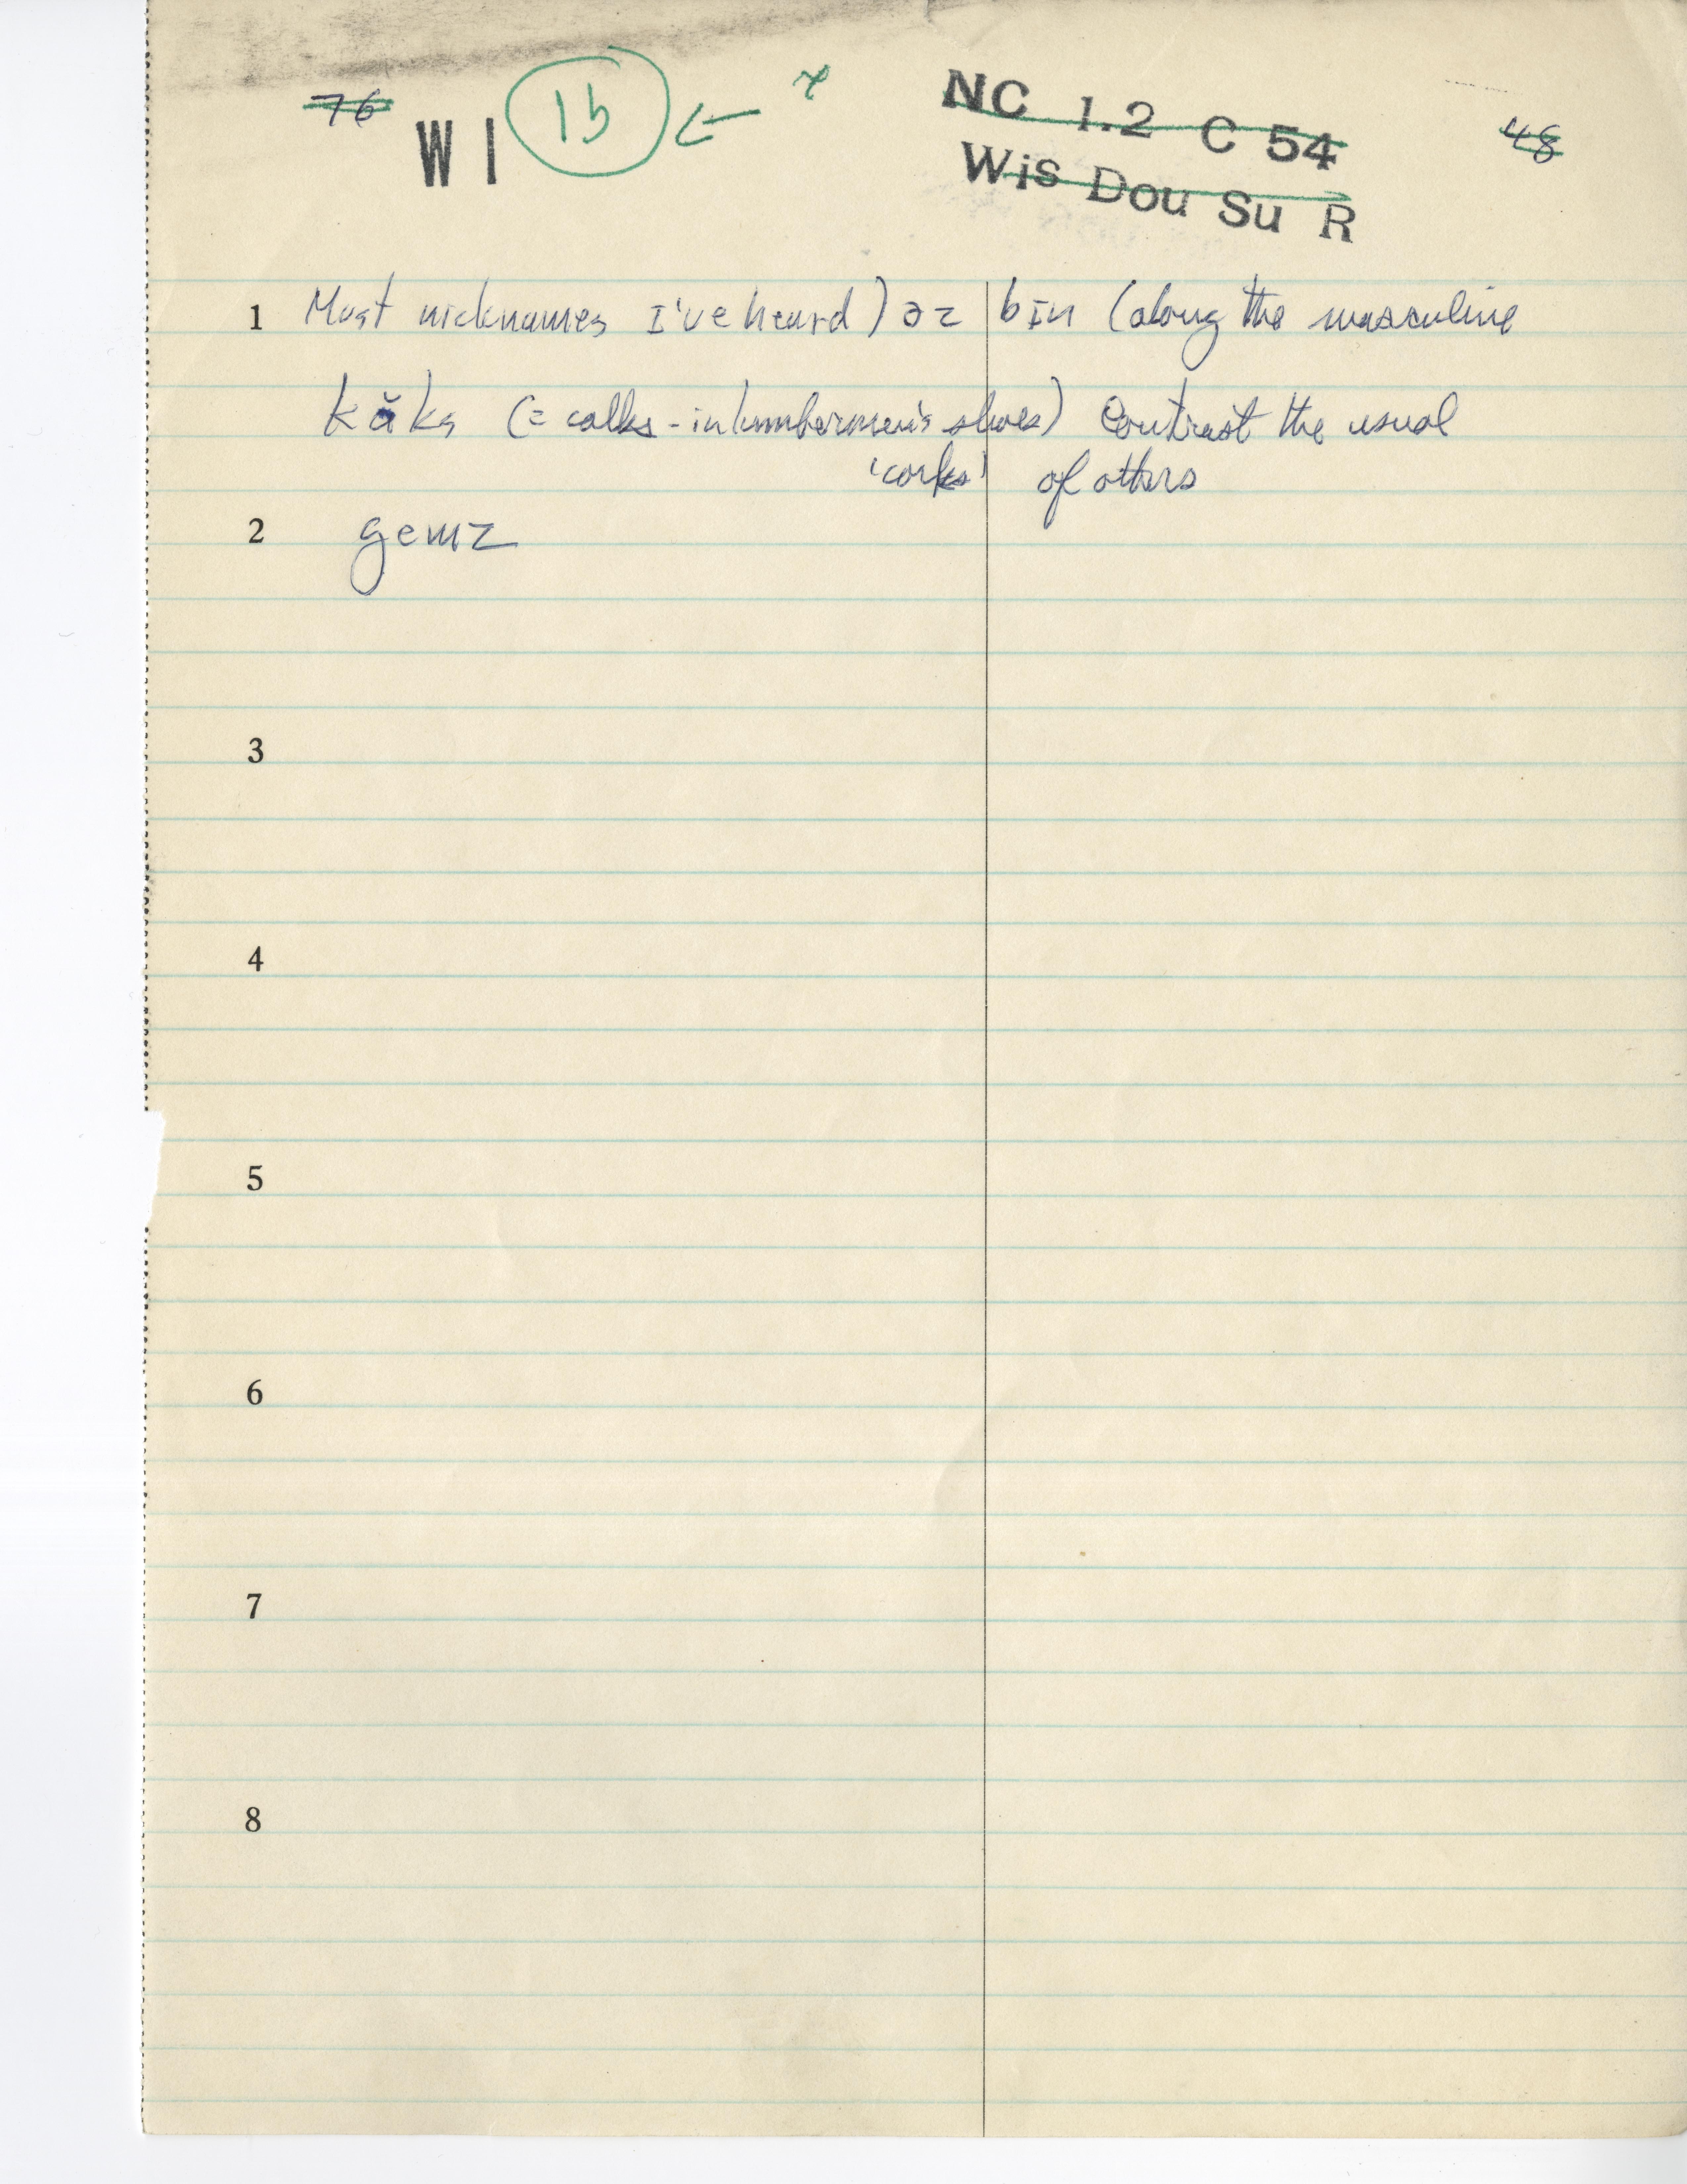 76 WI 15 ← x NC 1.2 C 54 48
Wis Dou Su R
1 Most nicknames I've heard) əz bɪn (along the masculine
kăks (= calks - in lumbermen's shoes) Contrast the usual
'corks' of others
2 gemz
3
4
5
6
7
8